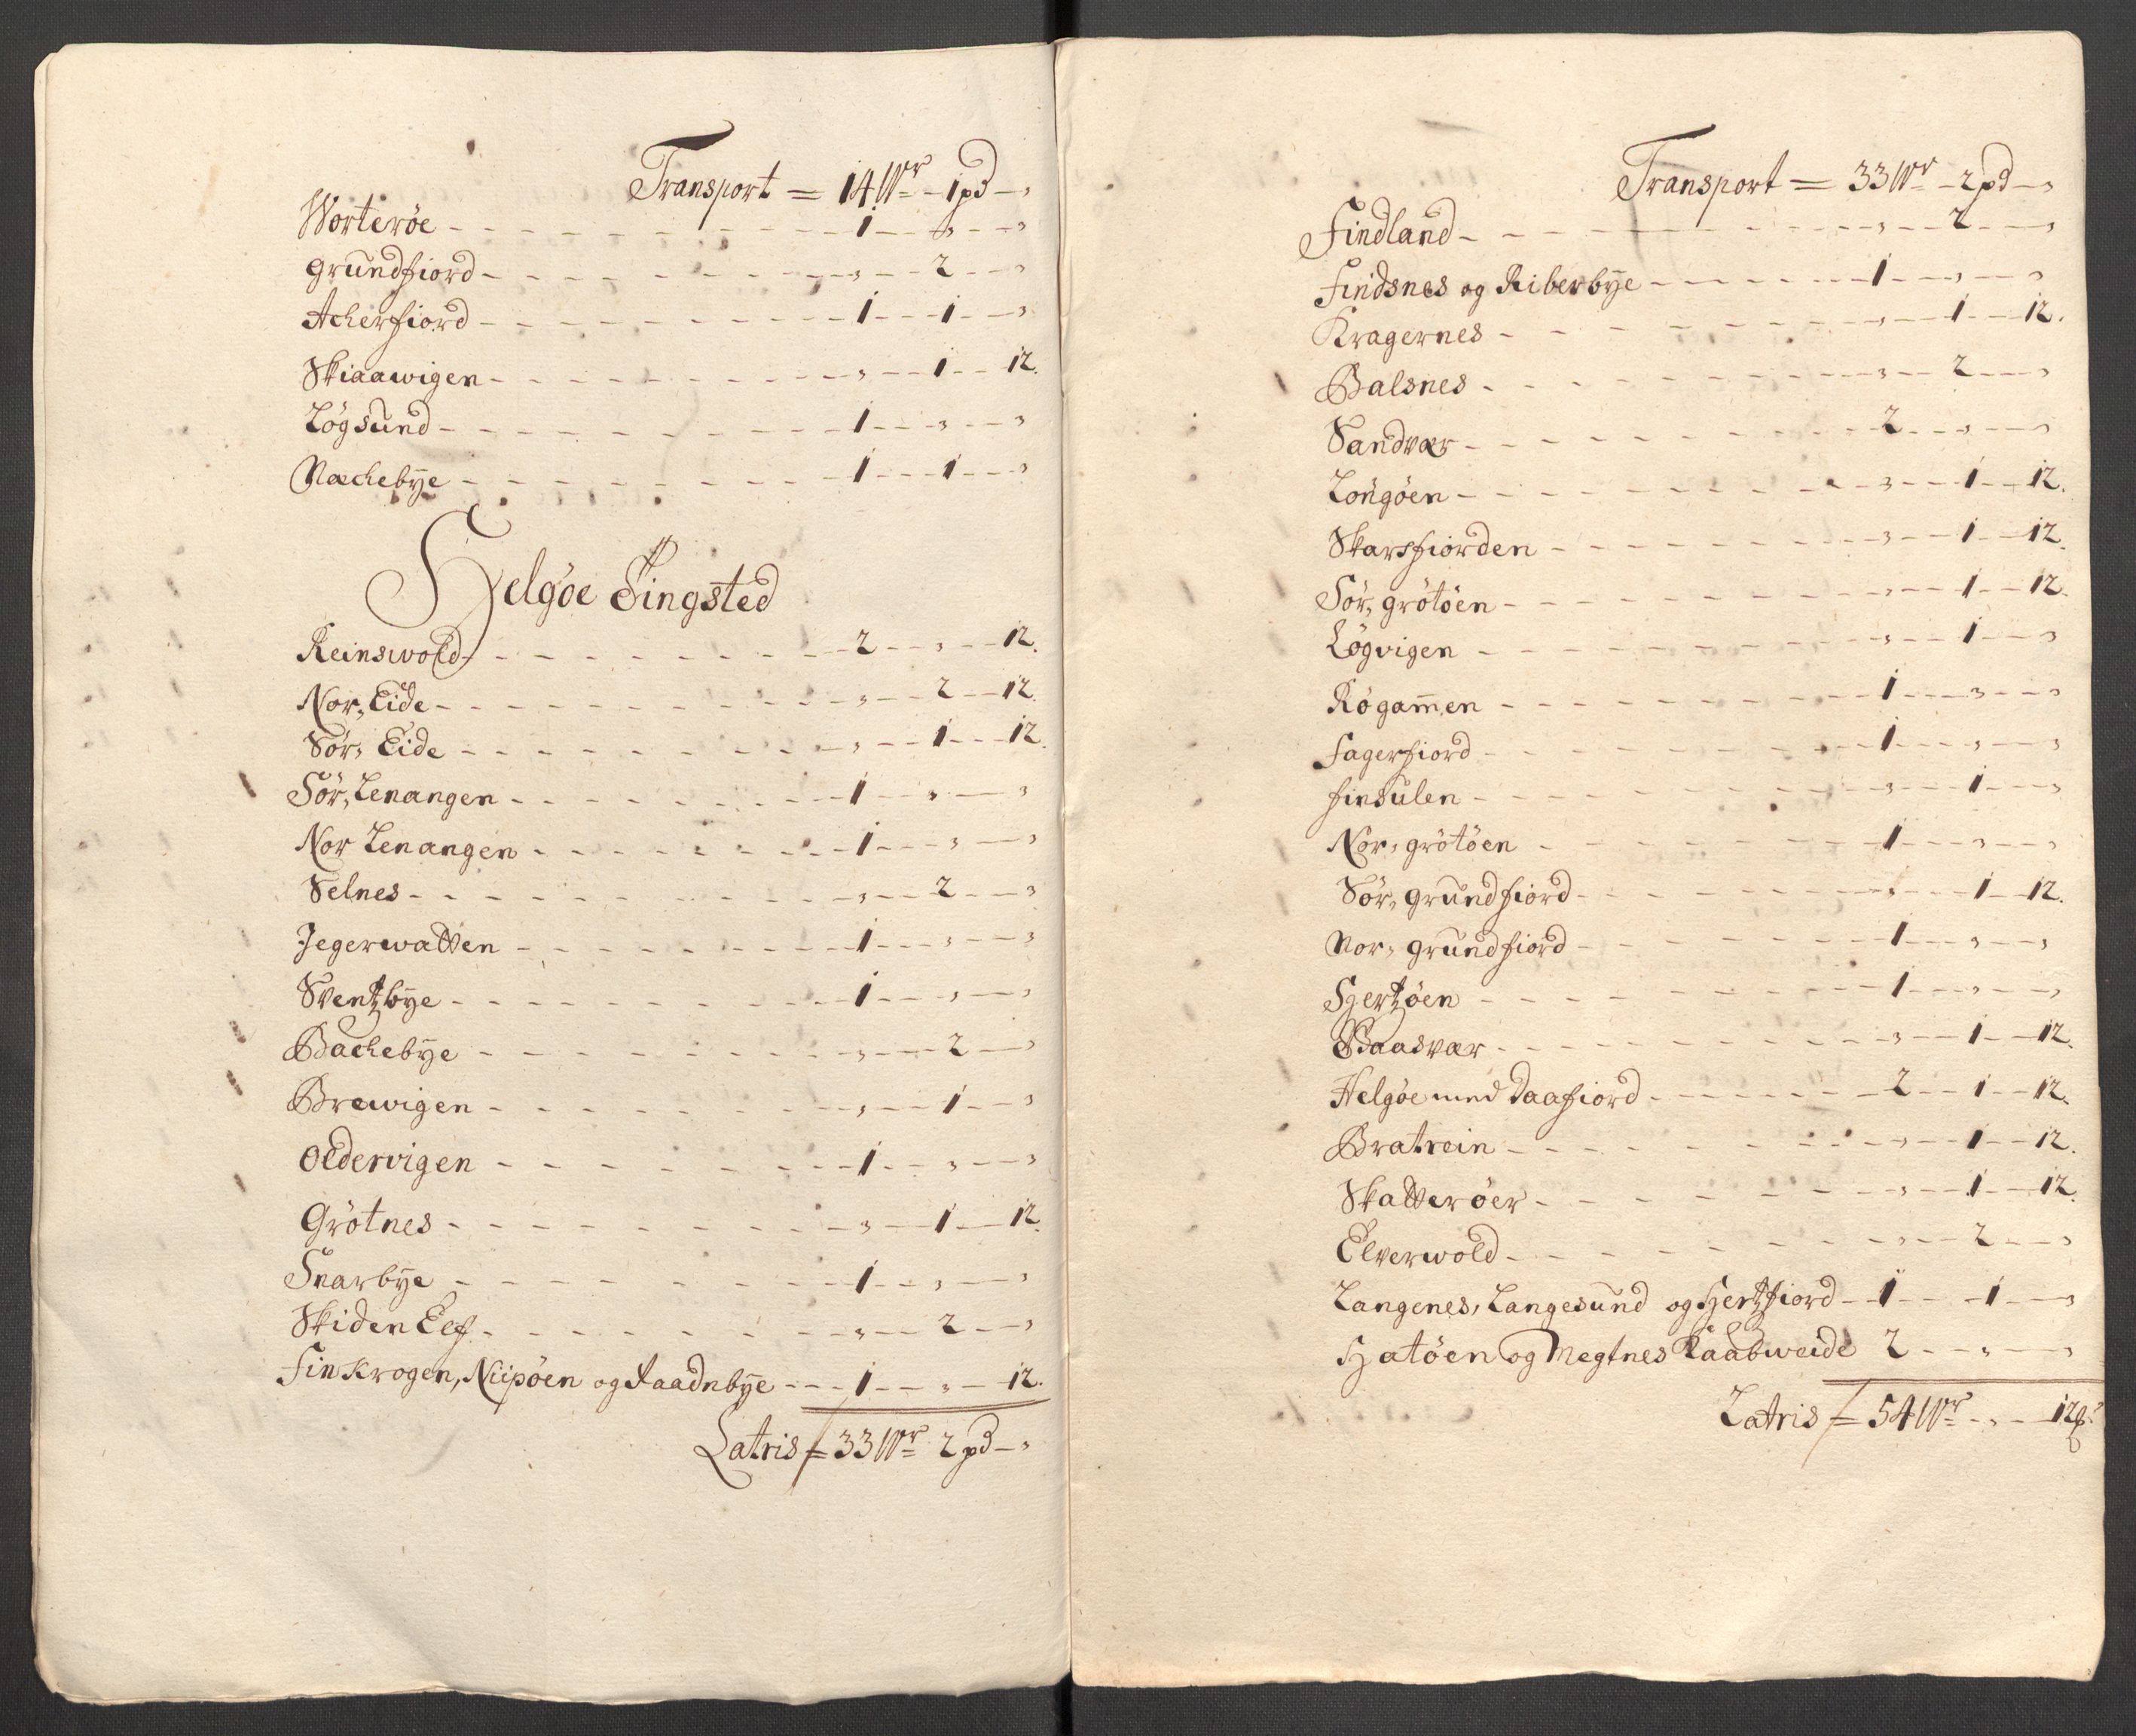 Transport = 14 Wr - 1 pd - ,
Worterøe - - - 1 - - , - - ,
Grundfiord - - - , - - 2 - - ,
Acherfiord - - - 1 - - 1 - - ,
Skiaawigen - - - , - - 1 - - 12.
Løgsund - - - 1 - - , - - ,
Nachebÿe - - - 1 - - 1 - - ,
Helgøe Tingsted
Reinswold - - - 2 - - , - - 12.
Nor, Eide - - - , - - 2 - - 12.
Sør, Eide - - - , - - 1 - - 12.
Sør, Lenangen - - - 1 - - , - - ,
Nor Lenangen - - - 1 - - , - - ,
Selnes - - - , - - 2 - - ,
Jegerwatten - - - 1 - - , - - ,
Sventzbÿe - - - 1 - - , - - ,
Bachebÿe - - - , - - 2 - - ,
Brewigen - - - , - - 1 - - ,
Oldervigen - - - 1 - - , - - ,
Grøtnes - - - , - - 1 - - 12.
Snarbÿe - - - 1 - - , - - ,
Skiden Elf - - - , - - 2 - - ,
Finkrogen, Niipøen og Raadnbÿe - - - 1 - - , - - 12.
Latris = 33 Wr 2 pd - ,
Transport = 33 Wr - 2 pd - ,
Findland - - - , - - 2 - - ,
Findsnes og Riiberbÿe - - - 1 - - , - - ,
Kragernes - - - , - - 1 - - 12.
Balsnes - - - , - - 2 - - ,
Sandvær - - - 2 - - , - - ,
Longøen - - - , - - 1 - - 12.
Skarsfiorden - - - , - - 1 - - 12.
Sør, grøtøen - - - , - - 1 - - 12.
Løgvigen - - - , - - 1 - - ,
Røgam̄en - - - 1 - - , - - ,
Fagerfiord - - - 1 - - , - - ,
finsulen - - - , - - 1 - - ,
Nor, grøtøen - - - 1 - - , - - ,
Sør, grundfiord - - - , - - 1 - - 12.
Nor, grundfiord - - - 1 - - , - - ,
Hertzøen - - - 1 - - , - - ,
Maasvær - - - , - - 1 - - 12.
Helgøe med Daafiord - - - 2 - - 1 - - 12.
Bratrein - - - , - - 1 - - 12.
Skatterøer - - - , - - 1 - - 12.
Elverwold - - - , - - 2 - - ,
Langenes, Langesund og Hertzfiord - - 1 - - 1 - - ,
Hatøen og Megtnes Kaabweide 2 - - , - - ,
Latris = 54 Wr - , - 12